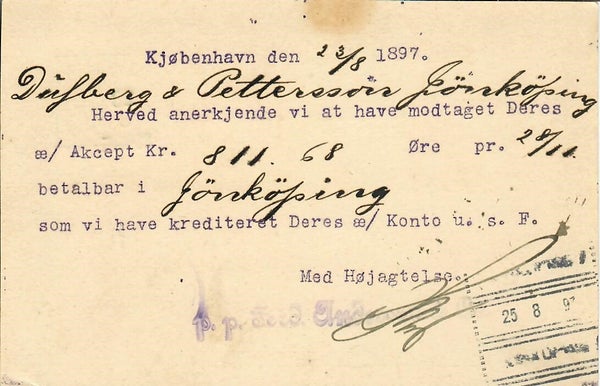 Kjøbenhavn den 23/8 1897.
& Pettersson Jönköping
Herved anerkjende vi at have modtaget Deres
æ/ Akcept Kr. 811. 68 Øre pr. 28/11.
betalbar i Jönköping
som vi have krediteret Deres æ/ Konto u. s. F.
Med Højagtelse.
p. p.
25 8 97